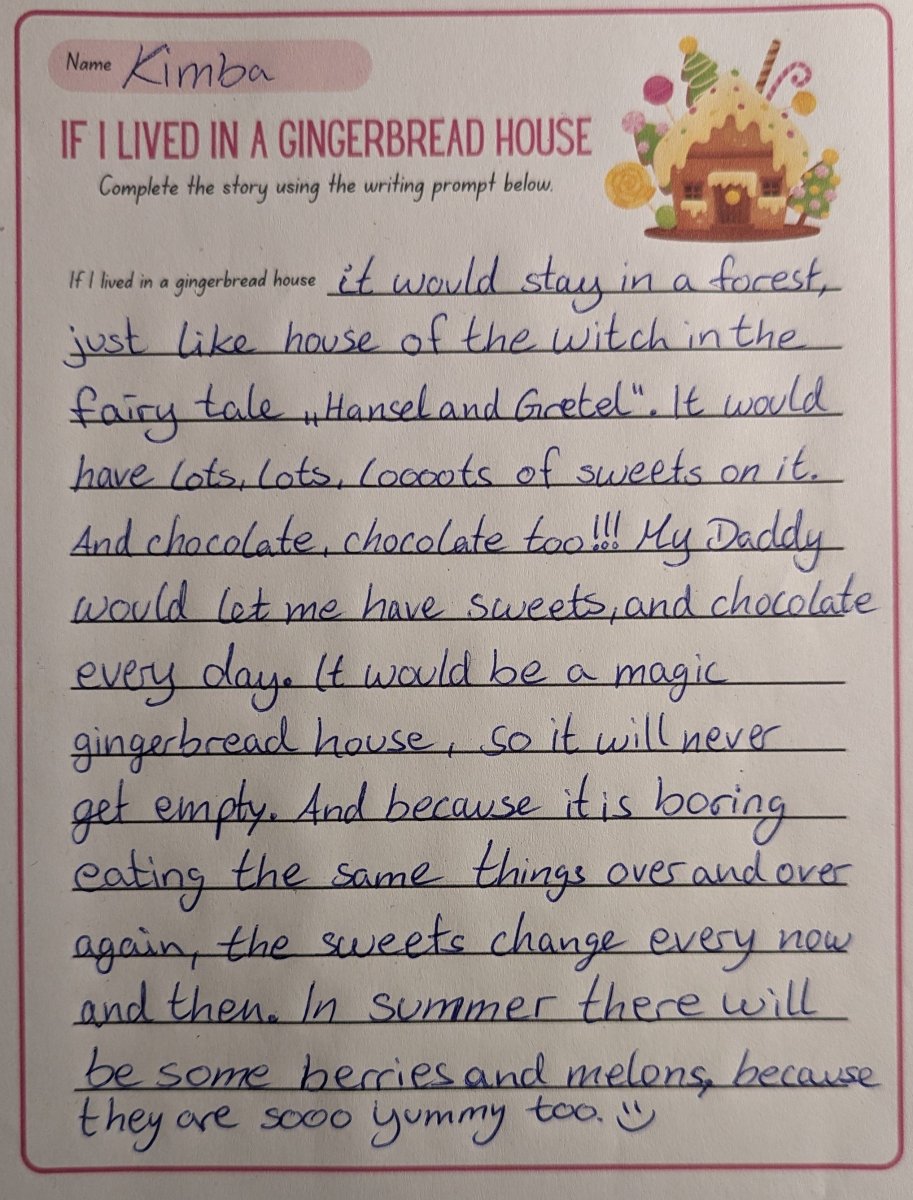 Name Kimba
IF I LIVED IN A GINGERBREAD HOUSE
Complete the story using the writing prompt below.
If I lived in a gingerbread house it would stay in a forest,
just like house of the witch in the
fairy tale „Hansel and Gretel". It would
have lots, lots, loooots of sweets on it.
And chocolate, chocolate too!!! My Daddy
would let me have sweets, and chocolate
every day. It would be a magic
gingerbread house, so it will never
get empty. And because it is boring
eating the same things over and over
again, the sweets change every now
and then. In summer there will
be some berries and melons, because
they are sooo yummy too. :)